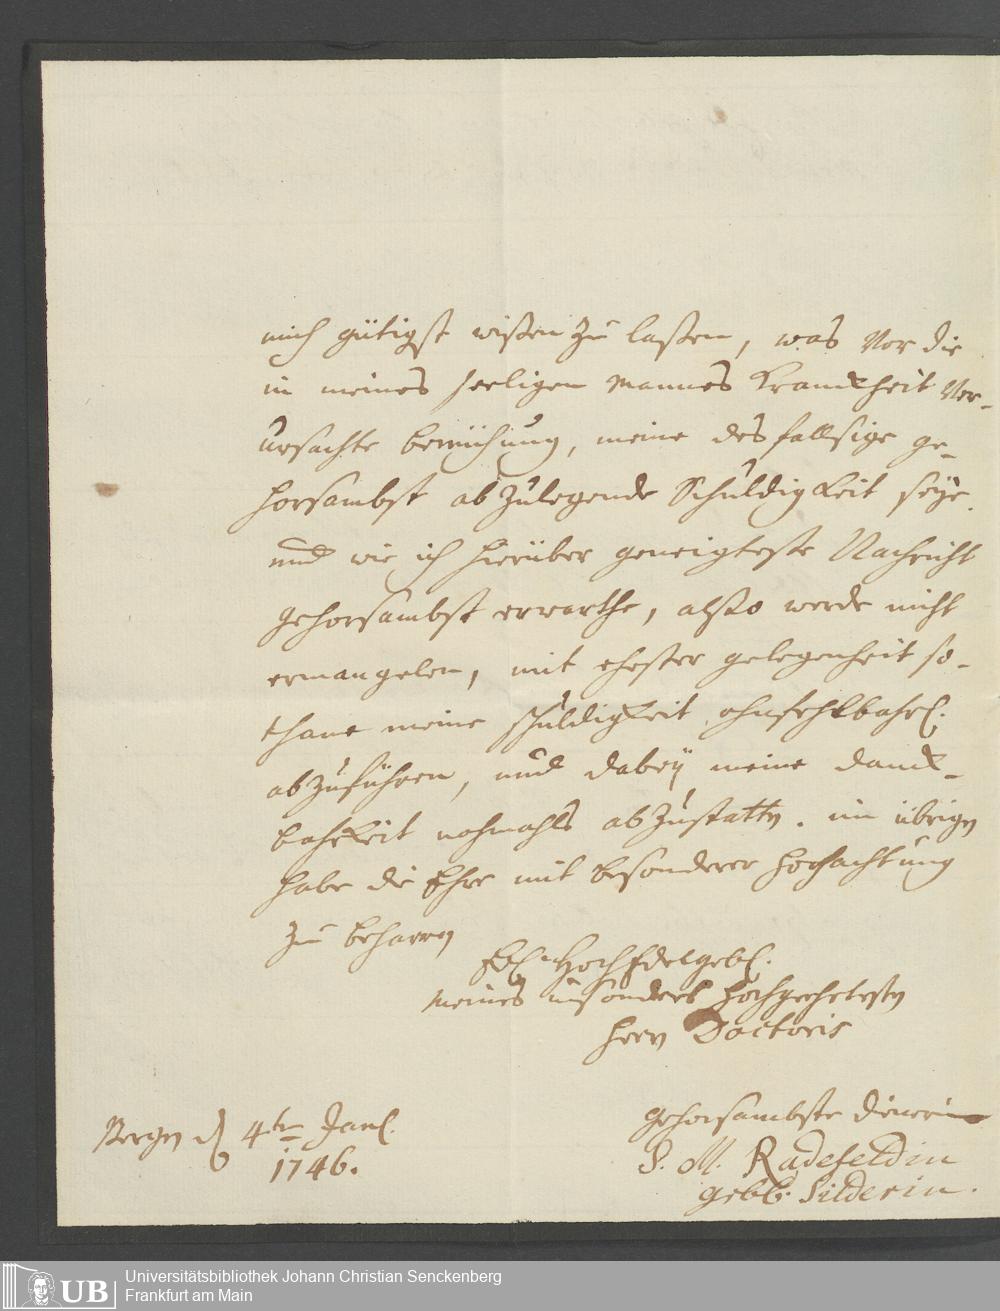 mich gütigst wißen zu laßen, was vor die
in meines seeligen Mannes Kranckheit ver-
ursachte bemühung, meine desfallsige ge-
horsambst abzulegende Schuldigkeit seye.
und wie ich hierüber geneigteste Nachricht
gehorsambst erwarthe, alßo werde nicht
ermangelen, mit ehester gelegenheit so-
thane meine schuldigkeit ohnfehlbahrl.
abzuführen, und dabeÿ meine danck-
bahrkeit nochmahls abzustatten. im übrigen
habe die Ehre mit besonderer hochachtung
zu beharren
Ew. HochEdelgebl.
meines insonders hochgeehrtesten
Herrn Doctoris
gehorsambste dienerin
S. M. Radefeldin
gebb. Silderin.
Bergen d. 4ten Janl.
1746.
UB
Universitätsbibliothek Johann Christian Senckenberg
Frankfurt am Main